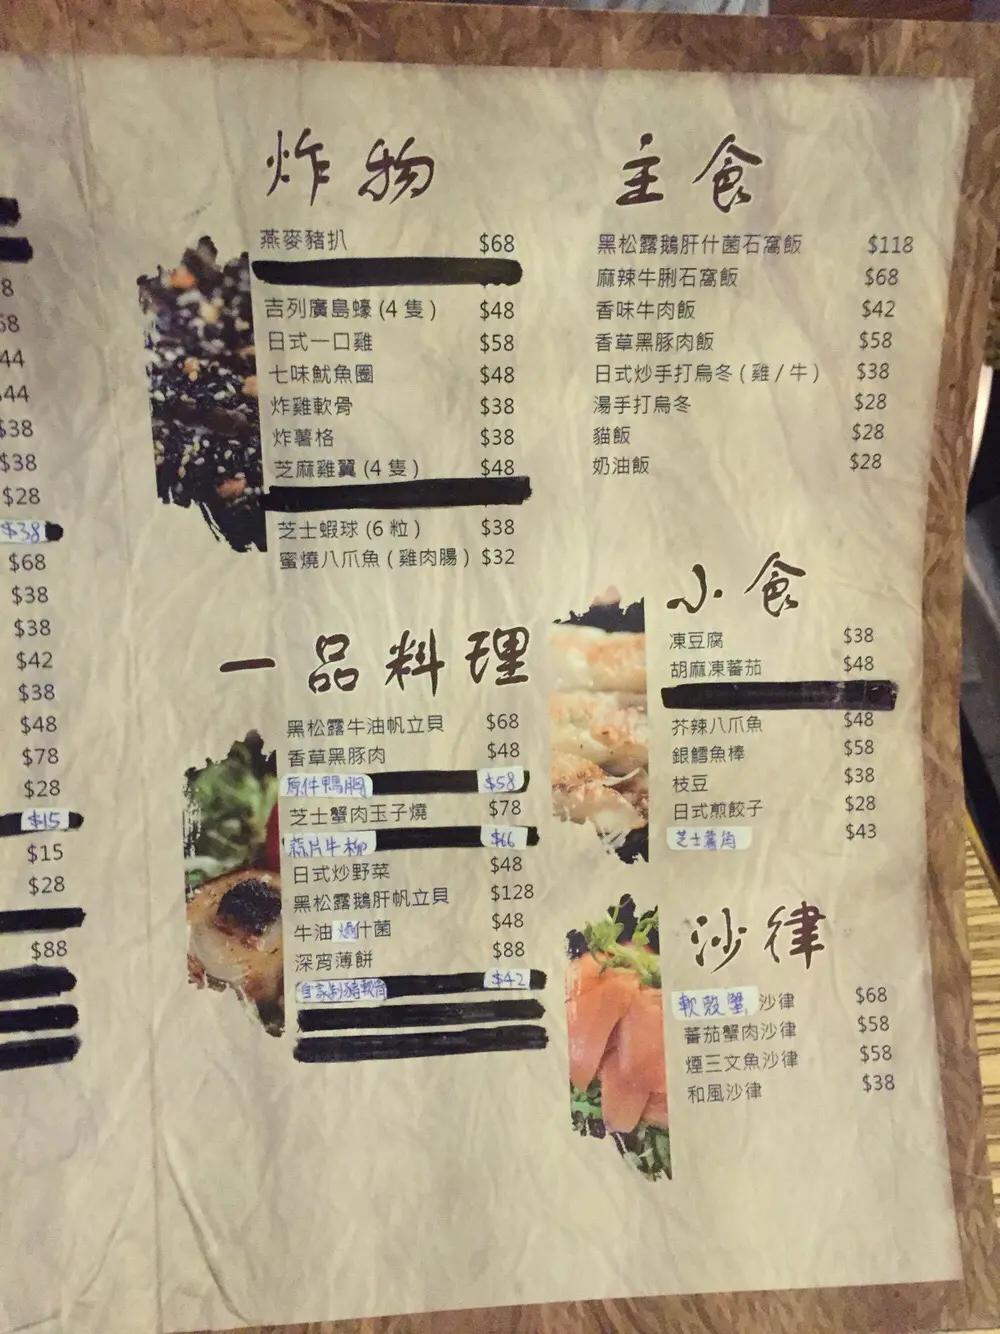 8
68
$44
$44
$38
$38
$28
$38
$68
$38
$38
$42
$38
$48
$78
$28
$15
$15
$28
$88
炸物
燕麥豬扒 $68
吉列廣島蠔 (4 隻) $48
日式一口雞 $58
七味魷魚圈 $48
炸雞軟骨 $38
炸薯格 $38
芝麻雞翼 (4 隻) $48
芝士蝦球 (6 粒) $38
蜜燒八爪魚 (雞肉腸) $32
一品料理
黑松露牛油帆立貝 $68
香草黑豚肉 $48
原件鴨胸 $58
芝士蟹肉玉子燒 $78
蒜片牛柳 $66
日式炒野菜 $48
黑松露鵝肝帆立貝 $128
牛油焗什菌 $48
深宵薄餅 $88
自家制豬軟骨 $42
主食
黑松露鵝肝什菌石窩飯 $118
麻辣牛脷石窩飯 $68
香味牛肉飯 $42
香草黑豚肉飯 $58
日式炒手打烏冬 (雞 / 牛) $38
湯手打烏冬 $28
貓飯 $28
奶油飯 $28
小食
凍豆腐 $38
胡麻凍蕃茄 $48
芥辣八爪魚 $48
銀鱈魚棒 $58
枝豆 $38
日式煎餃子 $28
芝士薯角 $43
沙律
軟殼蟹沙律 $68
蕃茄蟹肉沙律 $58
煙三文魚沙律 $58
和風沙律 $38